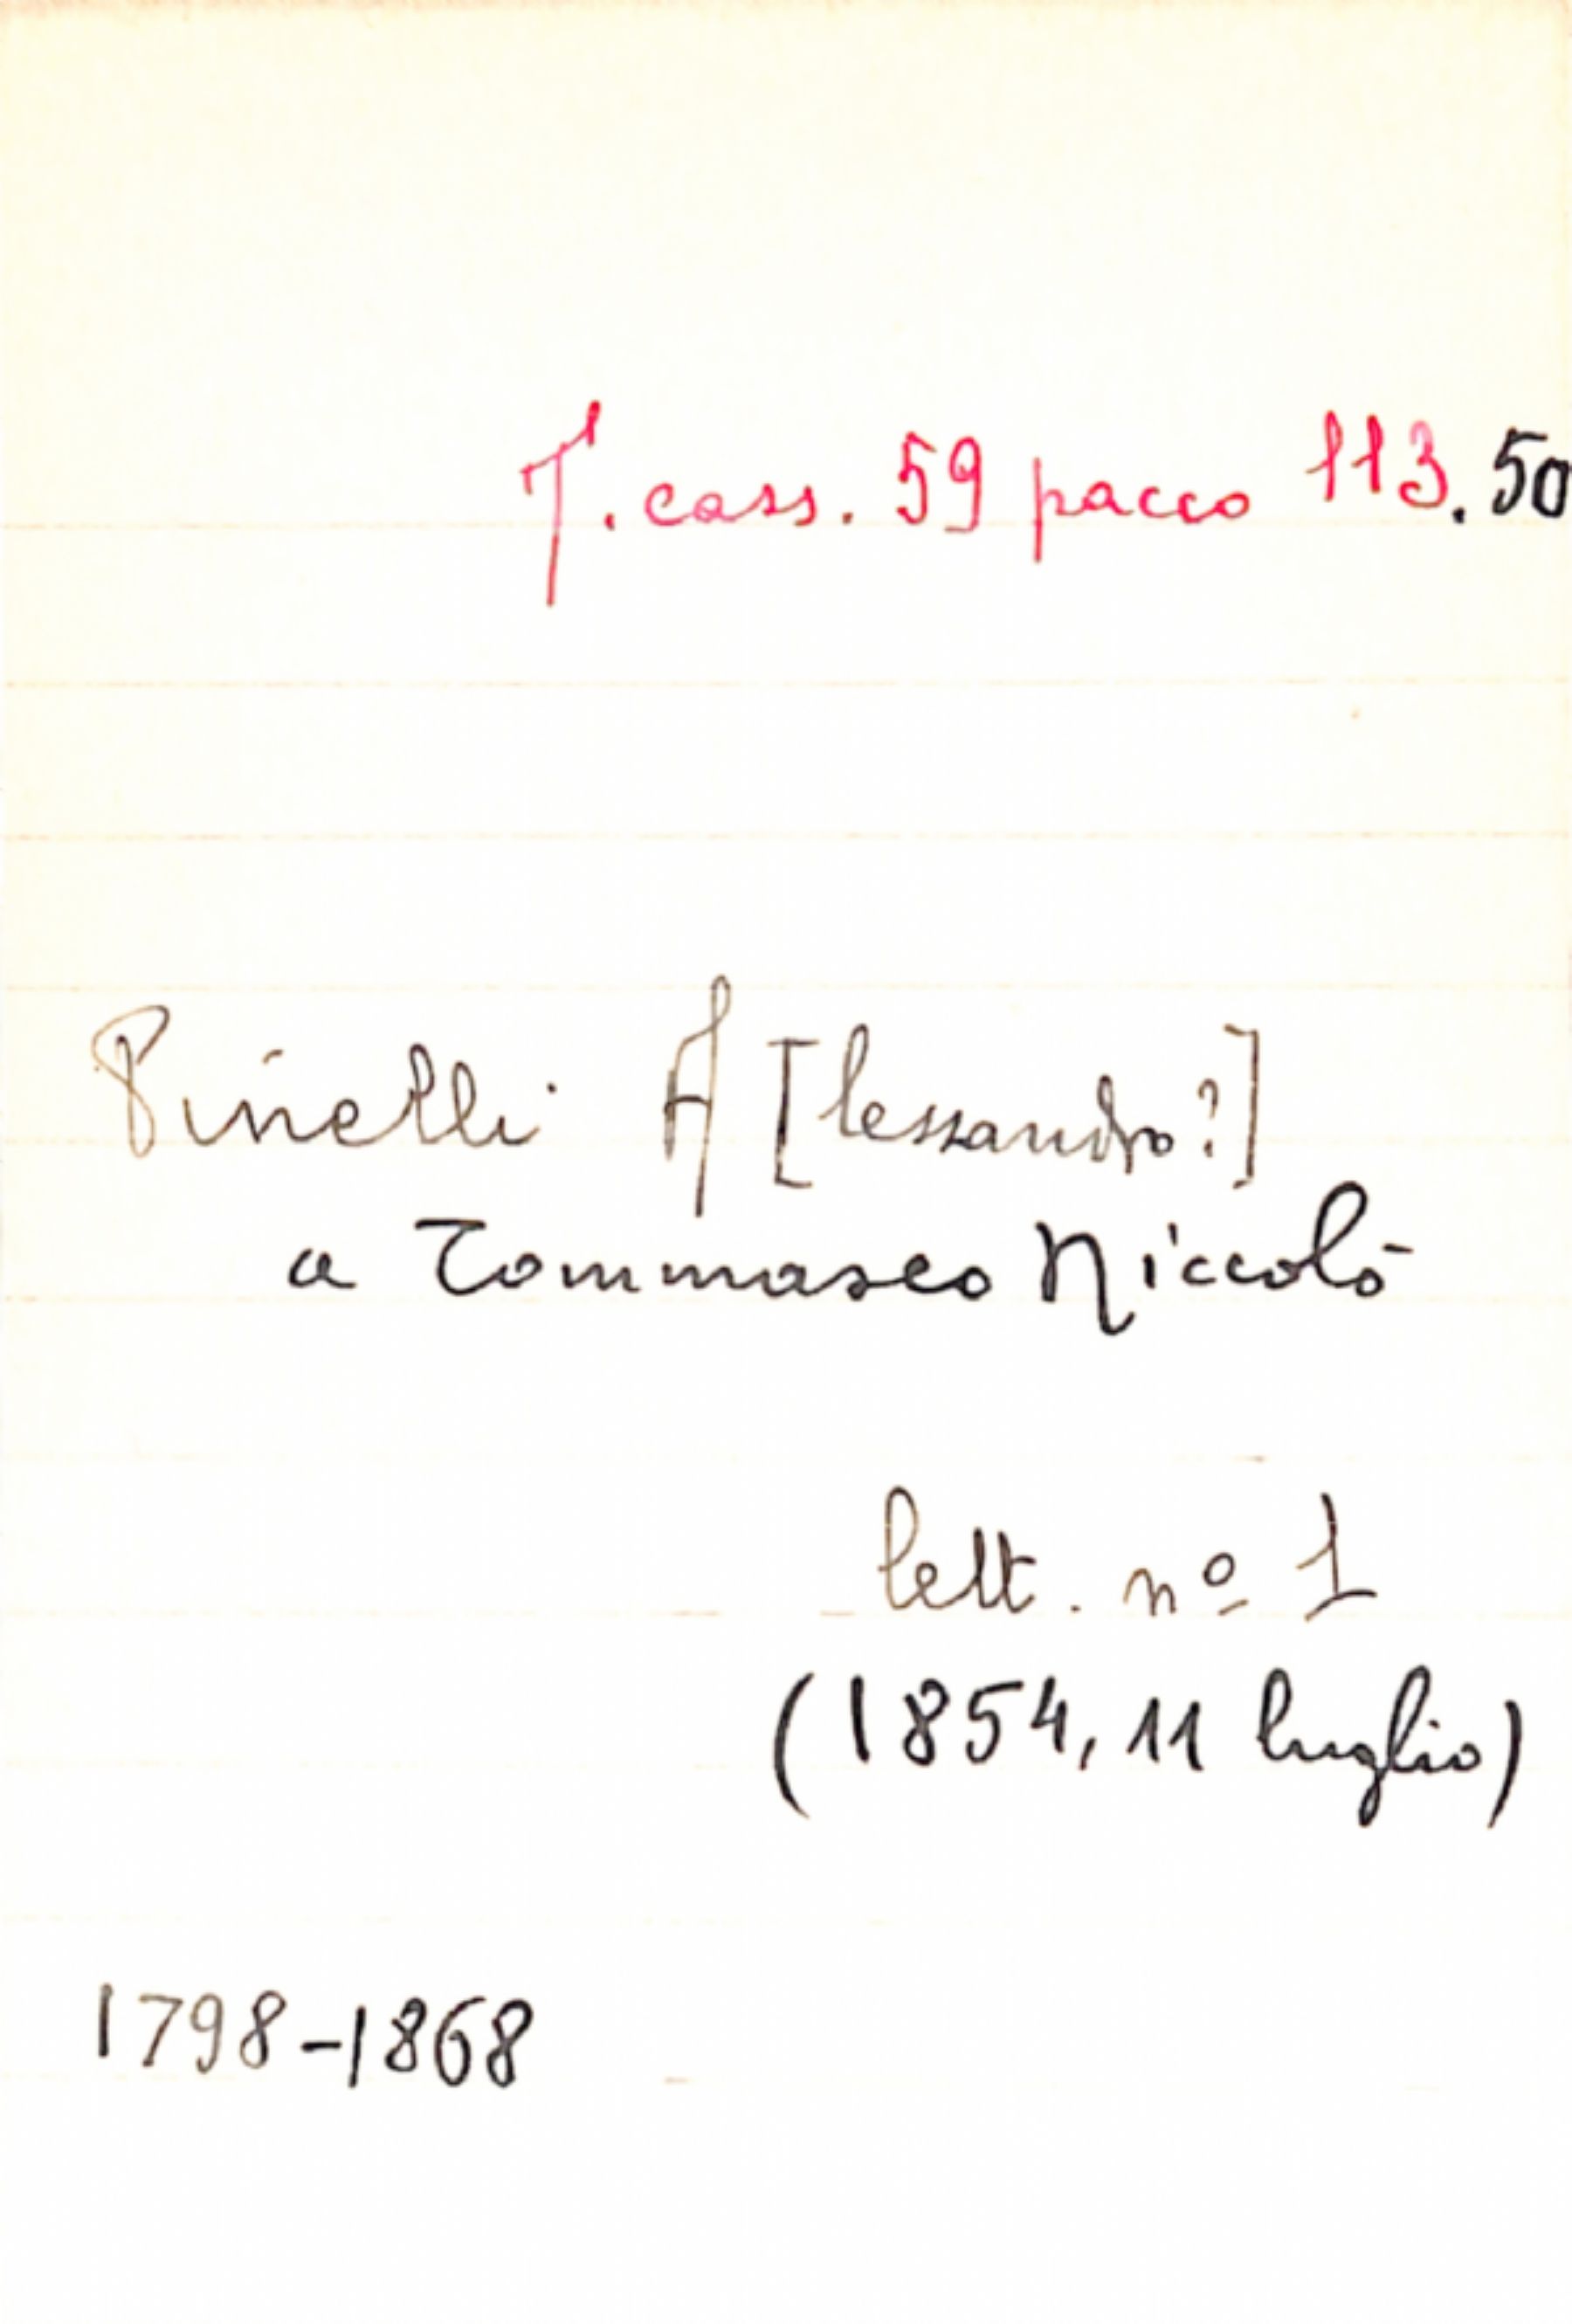 T. cass. 59 pacco 113.50
Pinelli A[lessandro?]
a Tommaseo Niccolò
lett. nº 1
(1854, 11 luglio)
1798-1868